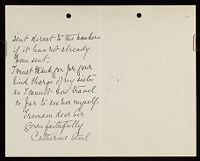 sent direct to the bankers
if it has not already
been sent.
I must thank you for your
kind charge of my sister
as I cannot now travel
so far to see her myself.
I remain dear Sir
Yours faithfully
Catherine